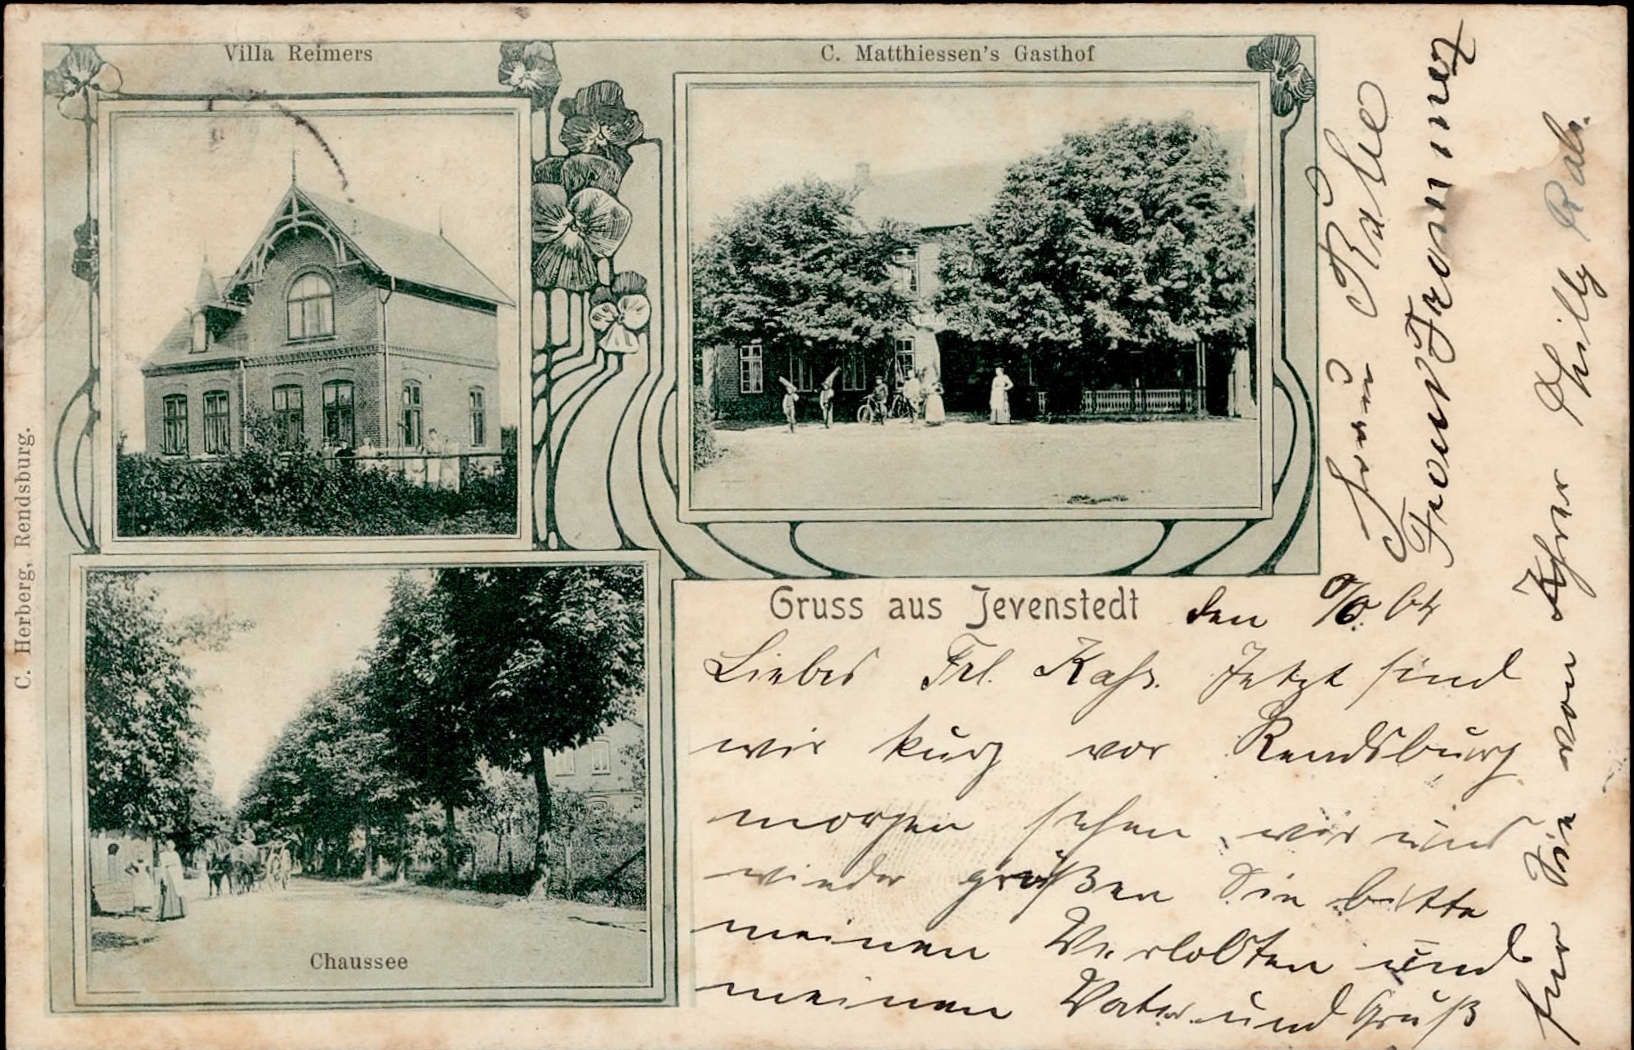 Villa Reimers
C. Matthiessen's Gasthof
C. Herberg, Rendsburg.
Chaussee
Gruss aus Jevenstedt
den 9/6. 04
Liebes Frl. Kahs. Jetzt sind
wir kurz vor Rendsburg
morgen sehen wir uns
wieder grüßen Sie bitte
meinen Verlobten und
meinen Vater und Gruß
für Sie von Ihrer Philly Rah.
Frau
Frau Frommer